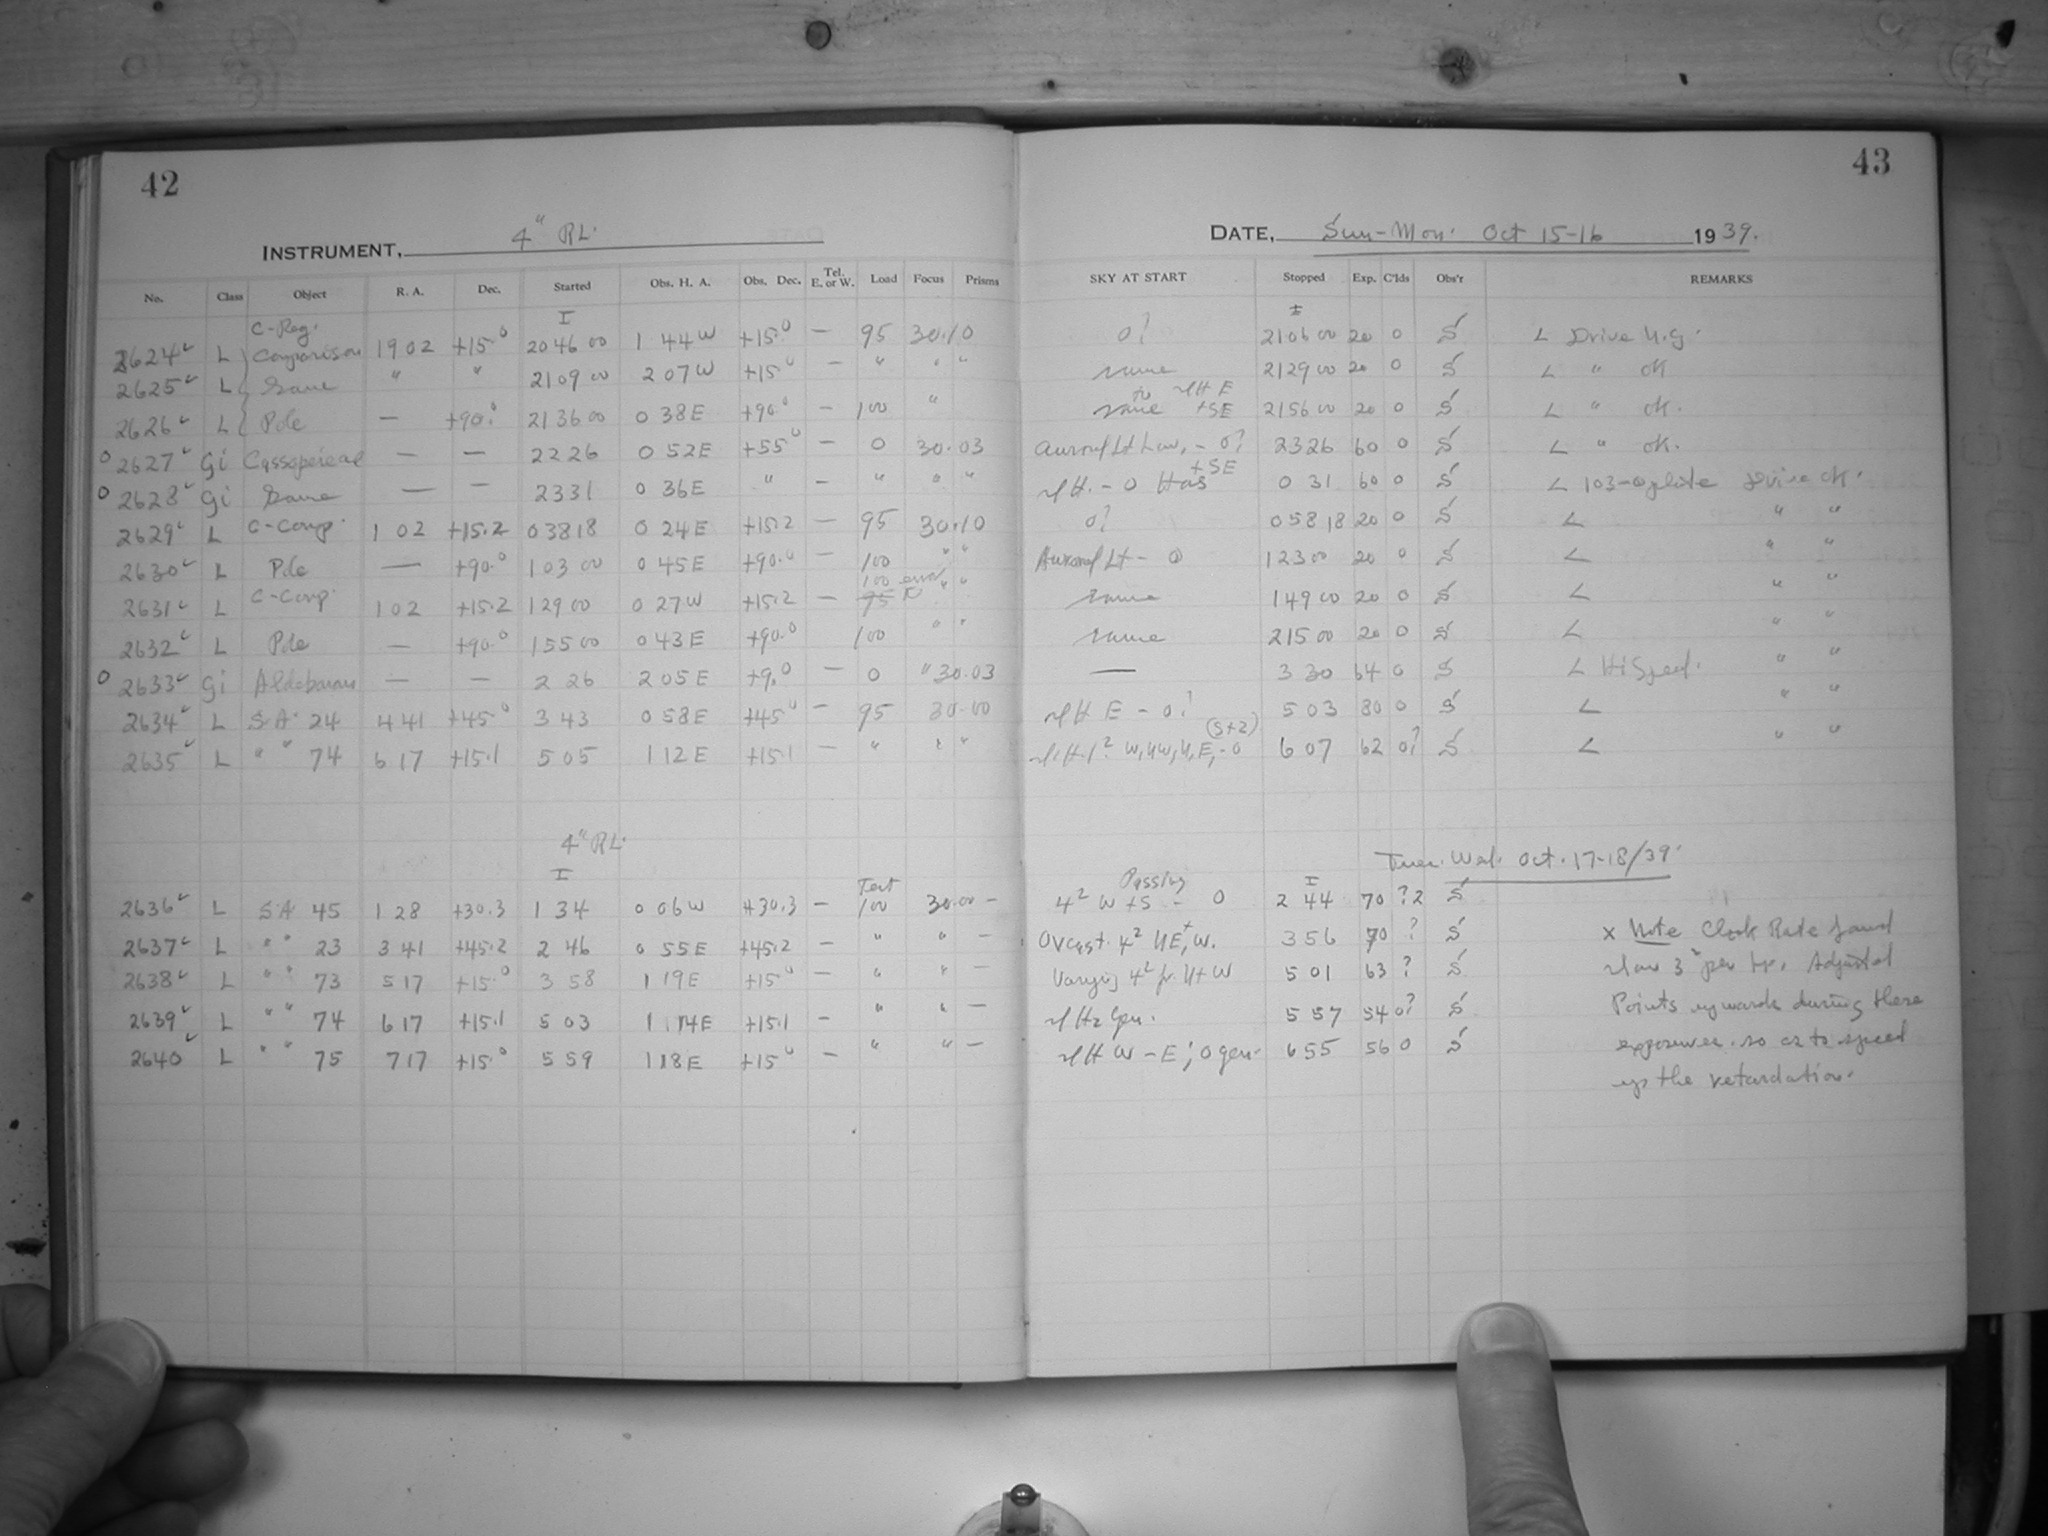 42
INSTRUMENT, 4" RL.
No. Class Object R. A. Dec. Started Obs. H. A. Obs. Dec. Tel. E. or W. Load Focus Prisms
I
C-Reg.
2624 L Comparison 19 02 +15.0 20 46 00 1 44 W +15.0 — 95 30.10
2625 L Same " " 21 09 00 2 07 W +15.0 — " " "
2626 L Pole — +90.0 21 36 00 0 38 E +90.0 — 100 "
0 2627 Gi — — 22 26 0 52 E +55.0 — 0 30.03
0 2628 Gi Same — — 23 31 0 36 E " — " " "
2629 L C-Comp. 1 02 +15.2 0 38 18 0 24 E +15.2 — 95 30.10
2630 L Pole — +90.0 1 03 00 0 45 E +90.0 — 100 " "
100 error
2631 L C-Comp. 1 02 +15.2 1 29 00 0 27 W +15.2 — 95 " "
2632 L Pole — +90.0 1 55 00 0 43 E +90.0 100 " "
0 2633 Gi Aldebaran — — 2 26 2 05 E +9.0 — 0 " 30.03
2634 L SA. 24 4 41 +45.0 3 43 0 58 E +45.0 — 95 30.00
2635 L " " 74 6 17 +15.1 5 05 1 12 E +15.1 — " " "
4" RL.
I
Test
2636 L SA 45 1 28 +30.3 1 34 0 06 W +30.3 — 100 30.00 —
2637 L " " 23 3 41 +45.2 2 46 0 55 E +45.2 — " " —
2638 L " " 73 5 17 +15.0 3 58 1 19 E +15.0 — " " —
2639 L " " 74 6 17 +15.1 5 03 1 14 E +15.1 — " " —
2640 L " " 75 7 17 +15.0 5 59 1 18 E +15.0 — " " —
43
DATE, Sun-Mon. Oct 15-16 1939.
SKY AT START Stopped Exp. C'lds Obs'r REMARKS
I
0? 21 06 00 20 0 S L Drive N.G.
same 21 29 00 20 0 S L " OK
to E
same +SE 21 56 00 20 0 S L " OK.
Auroral Lt Low, - 0? 23 26 60 0 S L " OK.
+SE
- 0 Has 0 31 60 0 S L 103-0 plate Drive OK.
0? 0 58 18 20 0 S L " "
Auroral Lt - 0 1 23 00 20 0 S L " "
same 1 49 00 20 0 S L " "
same 2 15 00 20 0 S L " "
— 3 30 64 0 S L Hi Speed. " "
E - 0? 5 03 80 0 S L " "
(S+Z)
W, NW, N, E, - 0 6 07 62 0? S L " "
Tues. Wed. Oct. 17-18/39.
Passing I
4² W +S - 0 2 44 70 ?2 S
Ovcast. 4² NE, + W. 3 56 70 ? S
Varying 4² fr. N+W 5 01 63 ? S
Gen. 5 57 54 0? S
W - E; 0 gen. 6 55 56 0 S
x Note Clock Rate found
slow 3ˢ per hr. Adjusted
Points upwards during these
exposures so as to speed
up the retardation.